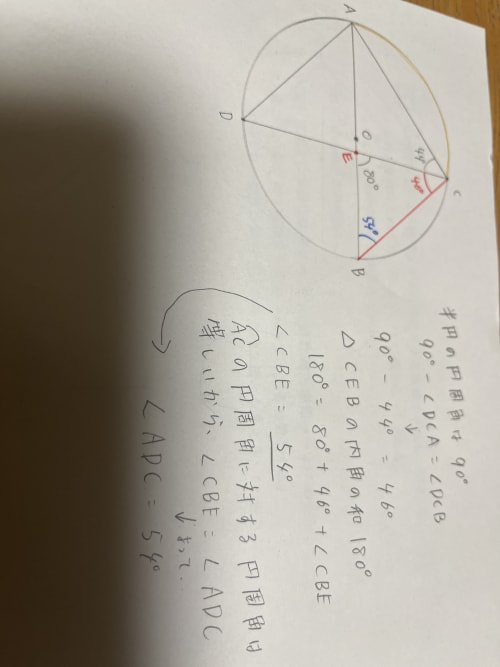 C
44°
46°
A
O
E
80°
54°
B
D
半円の円周角は 90°
90° - ∠DCA = ∠DCB
↓
90° - 44° = 46°
△CEBの内角の和180°
180° = 80° + 46° + ∠CBE
∠CBE = 54°
ACの円周角に対する円周角は
等しいから、∠CBE = ∠ADC
↓よって、
∠ADC = 54°